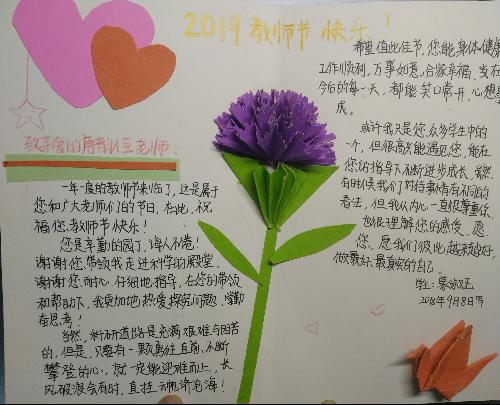 2019 教师节 快乐！
致亲爱的 老师：
一年一度的教师节来临了，这是属于
您和广大老师们的节日，在此，祝
福您，教师节快乐！
您是辛勤的园丁，诲人不倦！
谢谢您带领我走进科学的殿堂，
谢谢您耐心、仔细地指导，在您的带领
和帮助下，我更加地热爱探究问题，勤
在思考！
当然，科研道路是充满艰难与困苦
的，但是，只要有一颗勇往直前，不断
攀登的心，就一定能迎难而上，长
风破浪会有时，直挂云帆济沧海！
希望值此佳节，您能身体健康
工作顺利，万事如意，合家幸福，
今后的每一天，都能笑口常开，心想事
成。
或许我只是您众多学生中的
一个，但很高兴能遇见您，能在
您的指导下不断进步成长，当然，
有时候我们对待事情有不同的
看法，但我从内心一直很尊重你，
也很理解您的感受，愿
您，愿我们彼此越来越好，
做最好、最真实的自己。
学生：
9月8日写